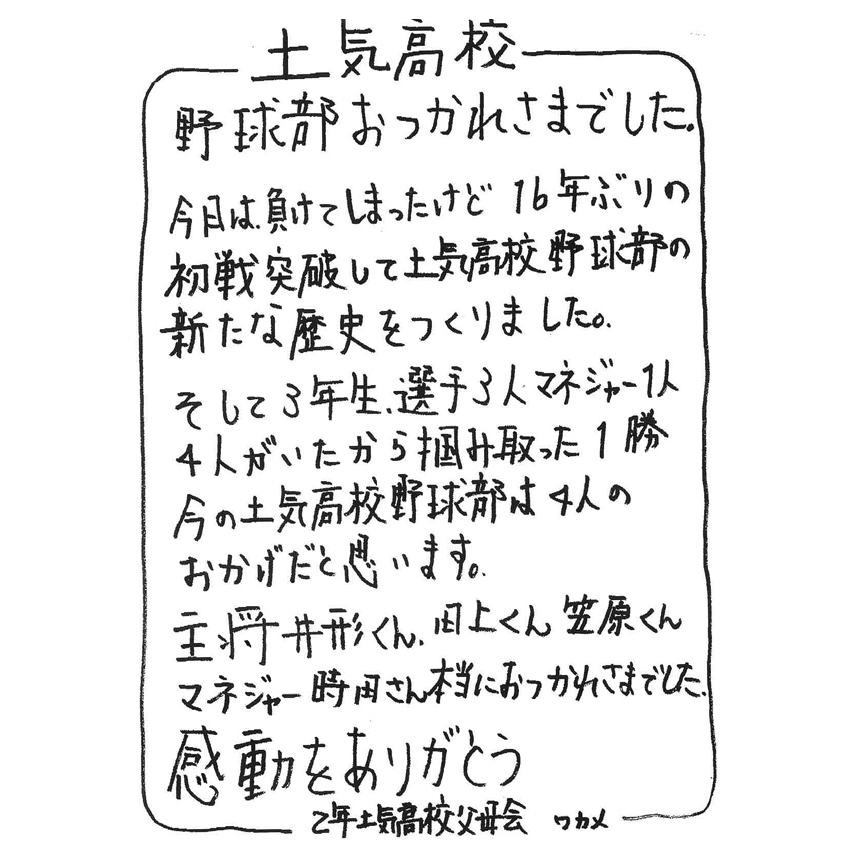 土気高校
野球部おつかれさまでした。
今日は、負けてしまったけど 16年ぶりの
初戦突破して土気高校野球部の
新たな歴史をつくりました。
そして3年生、選手3人マネジャー1人
4人がいたから掴み取った1勝
今の土気高校野球部は4人の
おかげだと思います。
主将井形くん、田上くん 笠原くん
マネジャー時田さん本当におつかれさまでした。
感動をありがとう
2年土気高校父母会 ワカメ